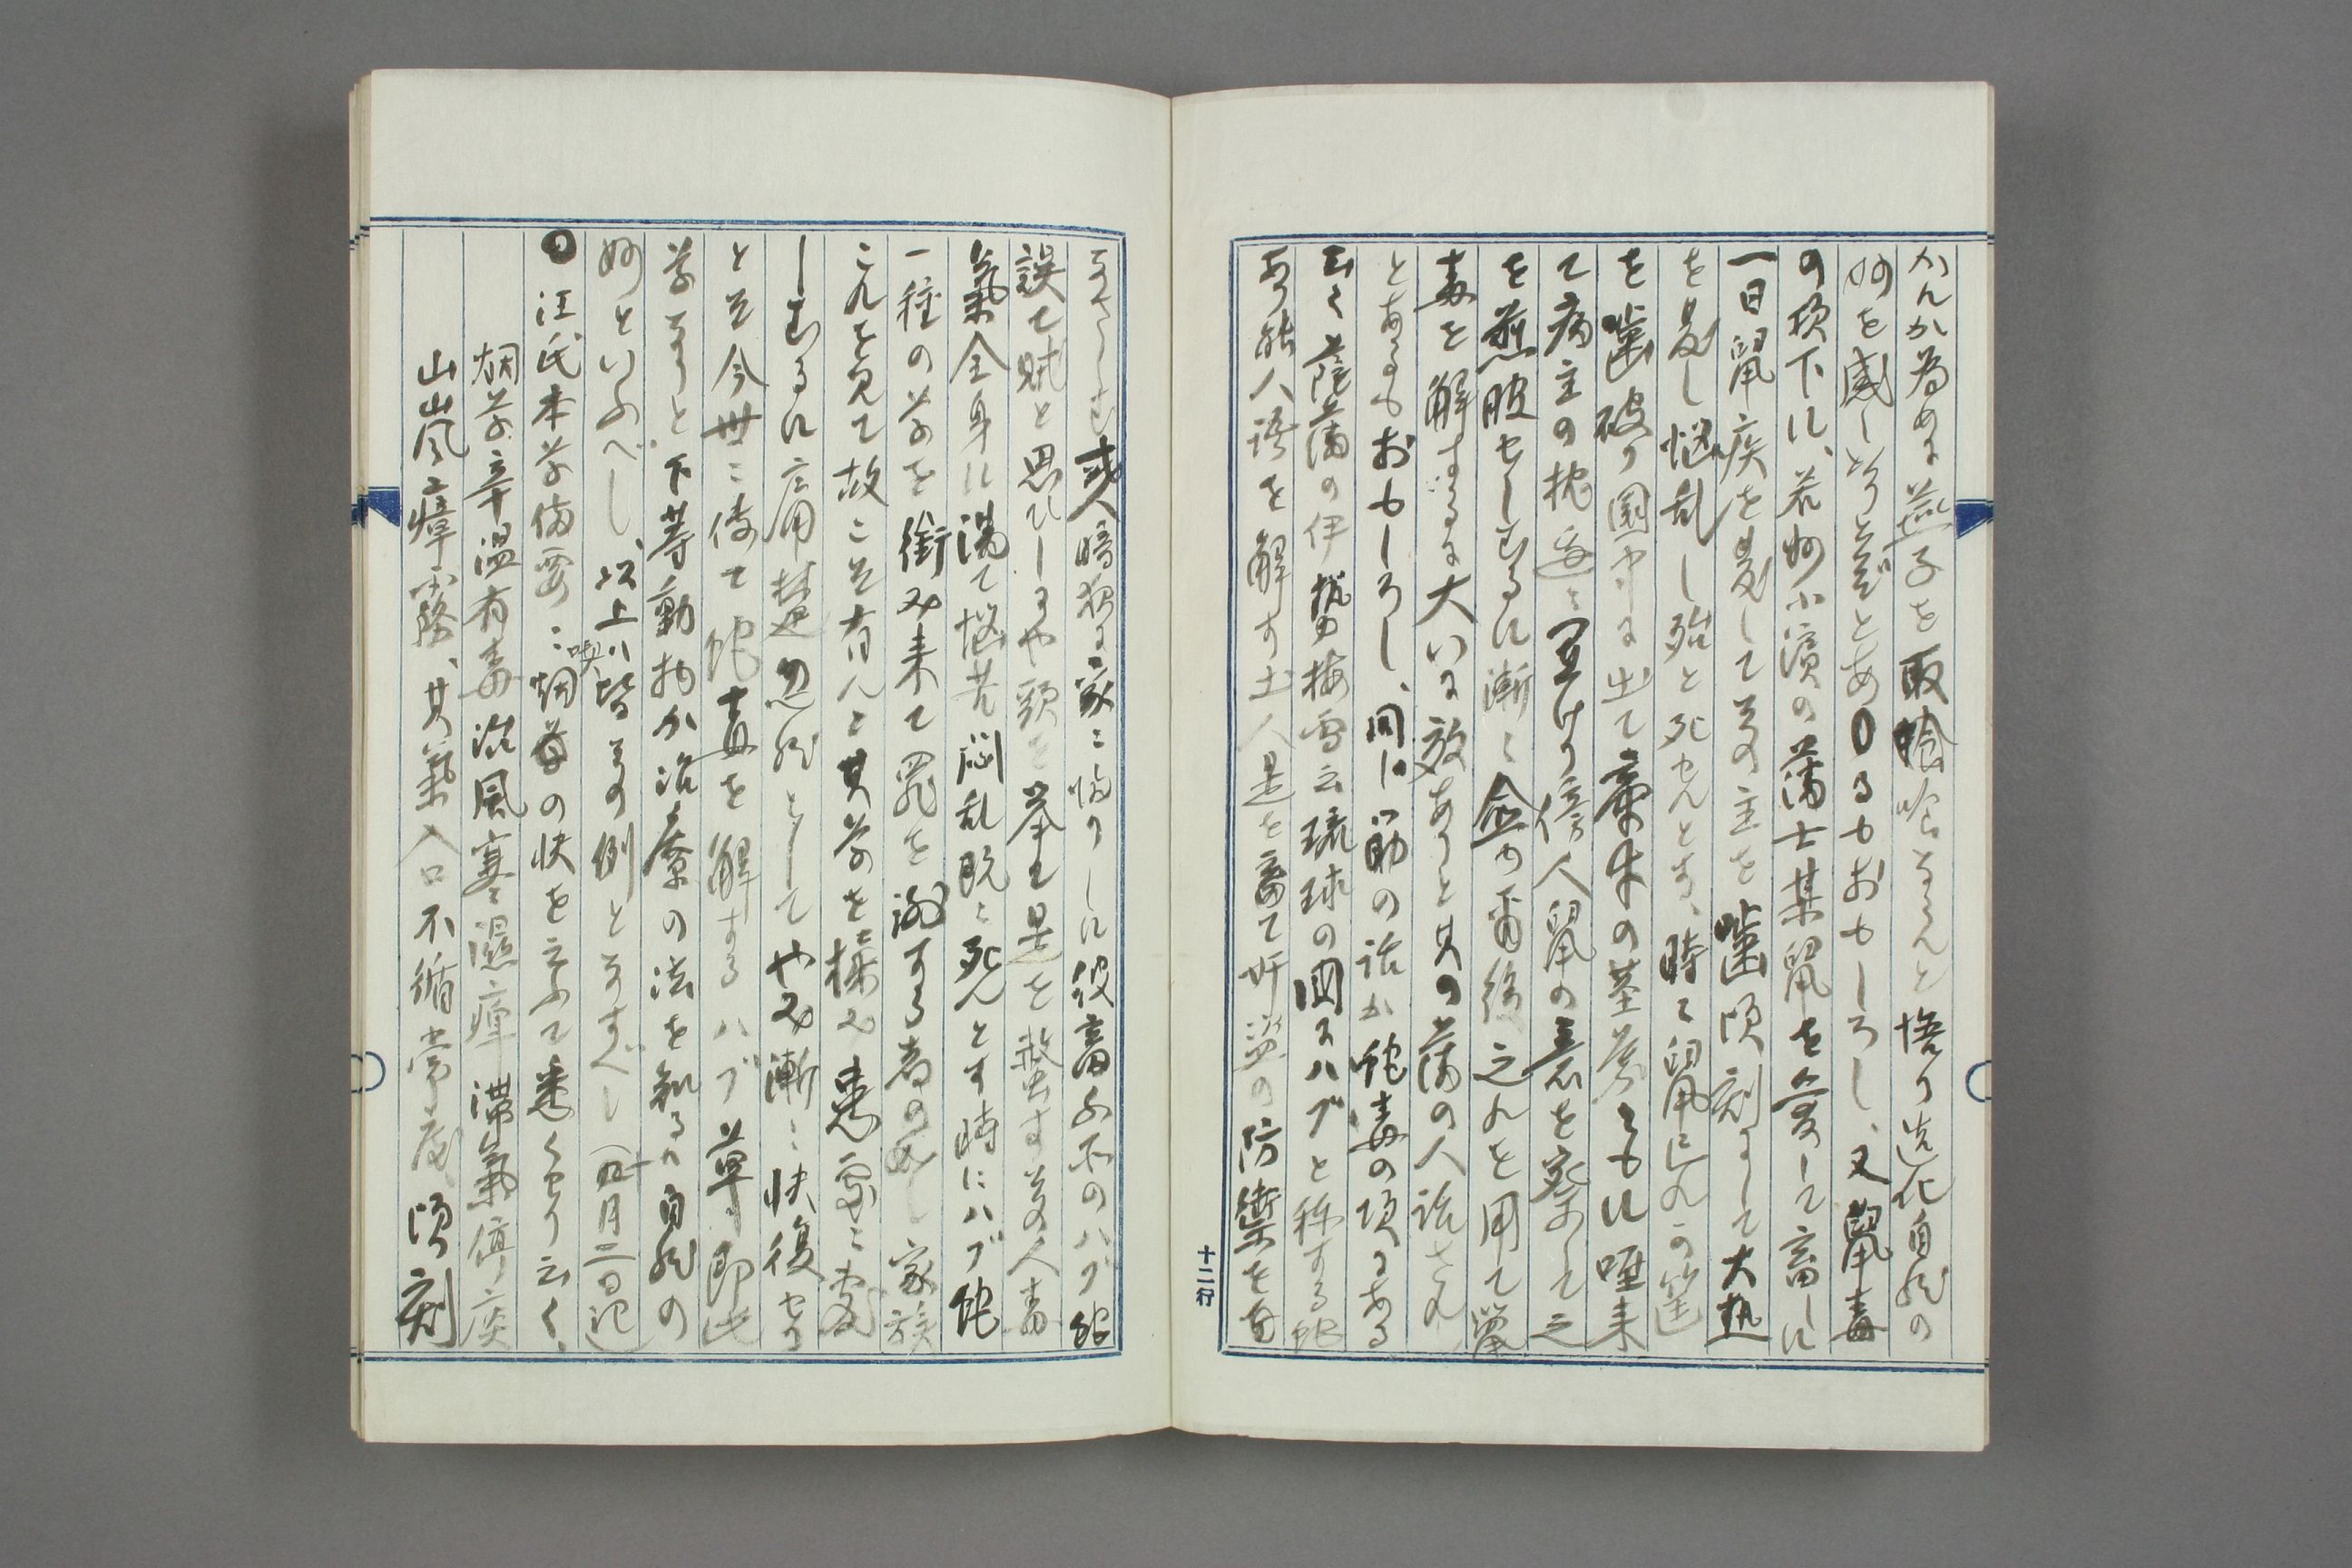 かんか為めに燕子を取擒喰ふならんと悟り造化自然の
妙を感し給ひぞとあるもおもしろし、又鼠毒
の項下に、若州小濱の藩士某鼠を愛して畜しに
一日鼠疾を発してその主を噛頃刻にして大熱
を発し悩乱し殆と死せんとす、時に鼠己れの篭
を噛破り園中に出て蕺木の茎葉ともに唾来
て病主の枕邊に置けり傍人鼠の意を察して之
を煎服せしむるに漸く愈の而後之れを用て鼠
毒を解するに大いに效ありと其の藩の人話さる
とあるもおもしろし、同じ筋の話か蛇毒の項にある
曰く薩藩の伊勢梅雪云琉球の国にハブと称する蛇
あり能人語を解す土人是を畜て奸盗の防禦を為
さしむ或人暗夜に家に帰りしに彼畜ふ所のハブ蛇
誤て賊と思ひしにや頭を挙て是を螫す其人毒
氣全身に満て悩苦悶乱既に死んとす時にハブ蛇
一種の草を銜み来て罪を謝する者の如し家族
これを見て故こそ有んと其草を揉み患處に傳
しむるに痛楚忽然としてやみ漸く快復せり
とぞ今世に傳て蛇毒を解するハブ草即此
草なりと、下等動物か治療の法を知るハ自然の
妙といふべし、以上ハ皆その例とすべし(四月二日記)
◯汪氏本草備要に喫烟草の快を言ふて悉くせり云く、
烟草辛温有毒治風寒濕痺滞氣停痰
山嵐瘴霧、其氣入口不循常度頃刻
十二行